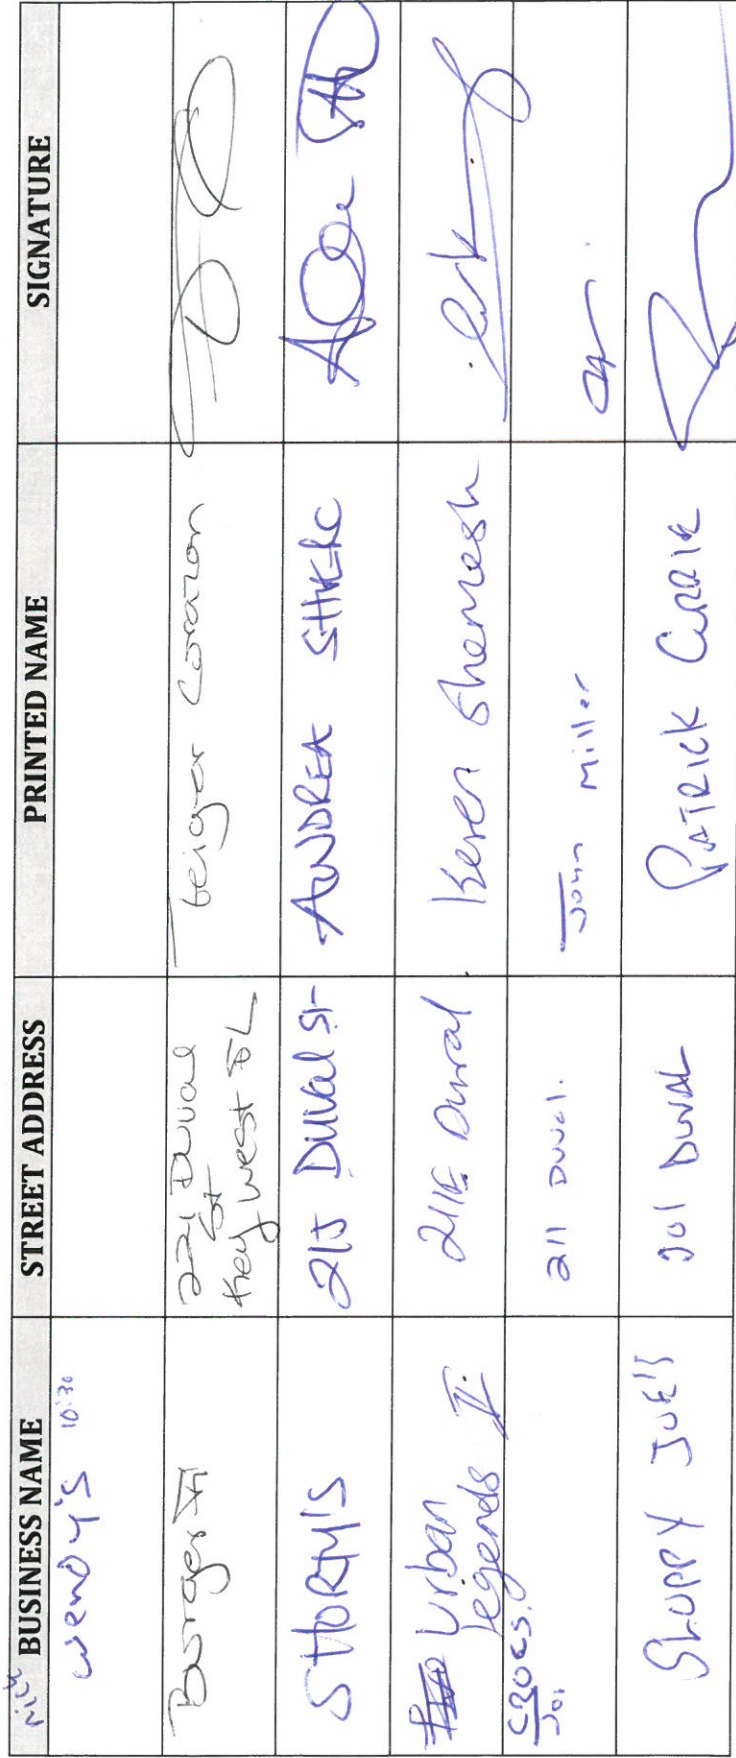 BUSINESS NAME STREET ADDRESS PRINTED NAME SIGNATURE
WENDY'S 10:30
Burgerfi 221 Duval St Key West FL Teigor Corazon
STORMY'S 215 Duval St ANDREA
Urban Legends II. 211E Duval Keren Shemesh
CROCS. 211 Duval. John Miller
SLOPPY JOE'S 201 DUVAL PATRICK CURRIE